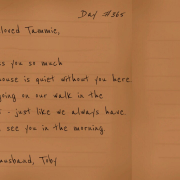 Day #365
loved Tammie,
s you so much
house is quiet without you here.
going on our walk in the
s - just like we always have.
l see you in the morning.
husband, Toby